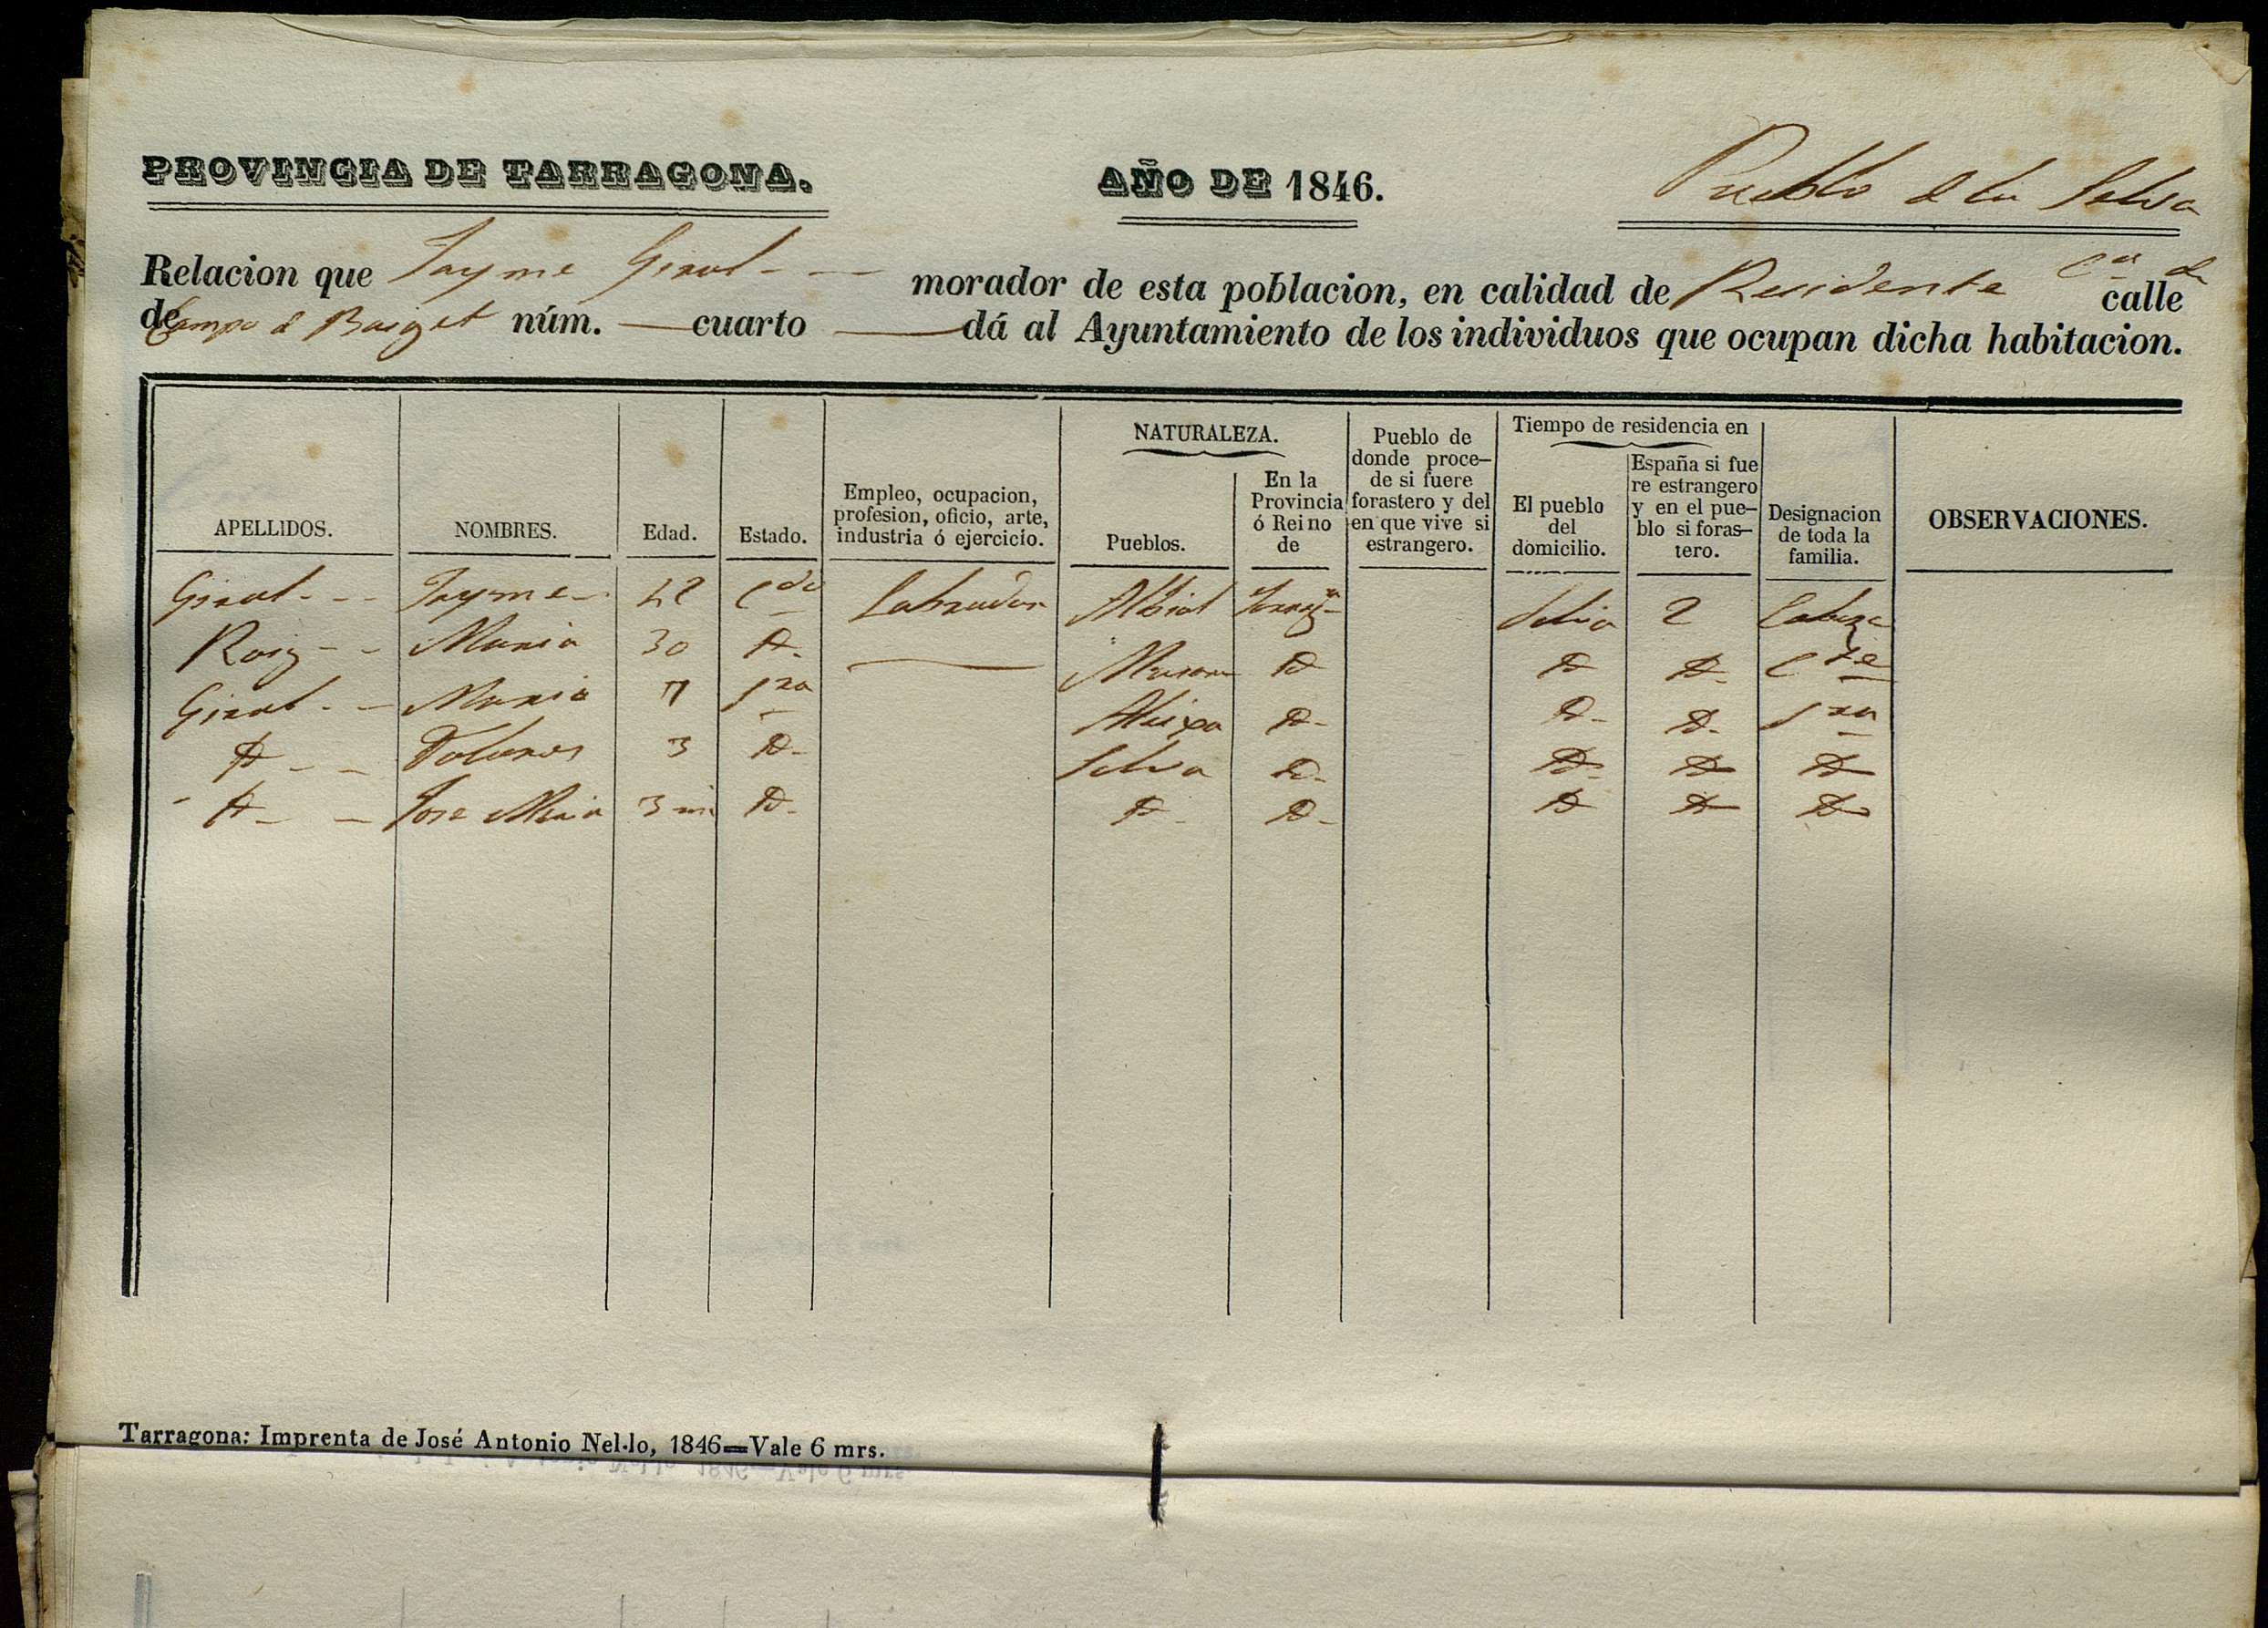 PROVINCIA DE TARRAGONA. AÑO DE 1846. Pueblo d la Selva
Relacion que Jayme Giral - - - morador de esta poblacion, en calidad de Residente Ca de calle
de Campo d Baiget núm. — cuarto — dá al Ayuntamiento de los individuos que ocupan dicha habitacion.
APELLIDOS.
NOMBRES.
Edad.
Estado.
Empleo, ocupacion,
profesion, oficio, arte,
industria ó ejercicio.
NATURALEZA.
Pueblos.
En la
Provincia
ó Reino
de
Pueblo de
donde proce-
de si fuere
forastero y del
en que vive si
estrangero.
Tiempo de residencia en
El pueblo
del
domicilio.
España si fue
re estrangero
y en el pue-
blo si foras-
tero.
Designacion
de toda la
familia.
OBSERVACIONES.
Giral - - - Jayme - 42 Cdo Labrador Albiol Tarrag.na Selva 2 Cabeza
Roig - - Maria 30 D. — D D D. Cte
Giral - - Maria 7 sra D. D. D. sra
D - - Dolores 3 D. Selva D. D. D D
D - - Jose Maria 3 m D. D. D. D D D
Tarragona: Imprenta de José Antonio Nel·lo, 1846=Vale 6 mrs.